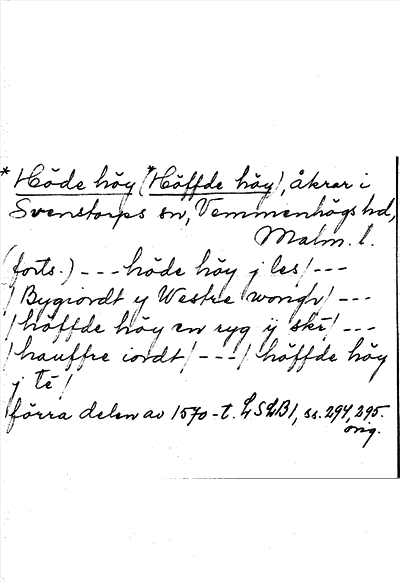 *Höde höy (*Höffde höy), åkrar i
Svenstorps sn, Vemmenhögs hd,
Malm. l.
(forts.) --- höde höy j les/ ---
/ Bygiordt y Westre wongh/ ---
/ höffde höy en ryg y ski/ ---
/ hauffre iordt/ --- / höffde höy
j te /
förra delen av 1570-t. LSLB1, ss. 294, 295.
orig.